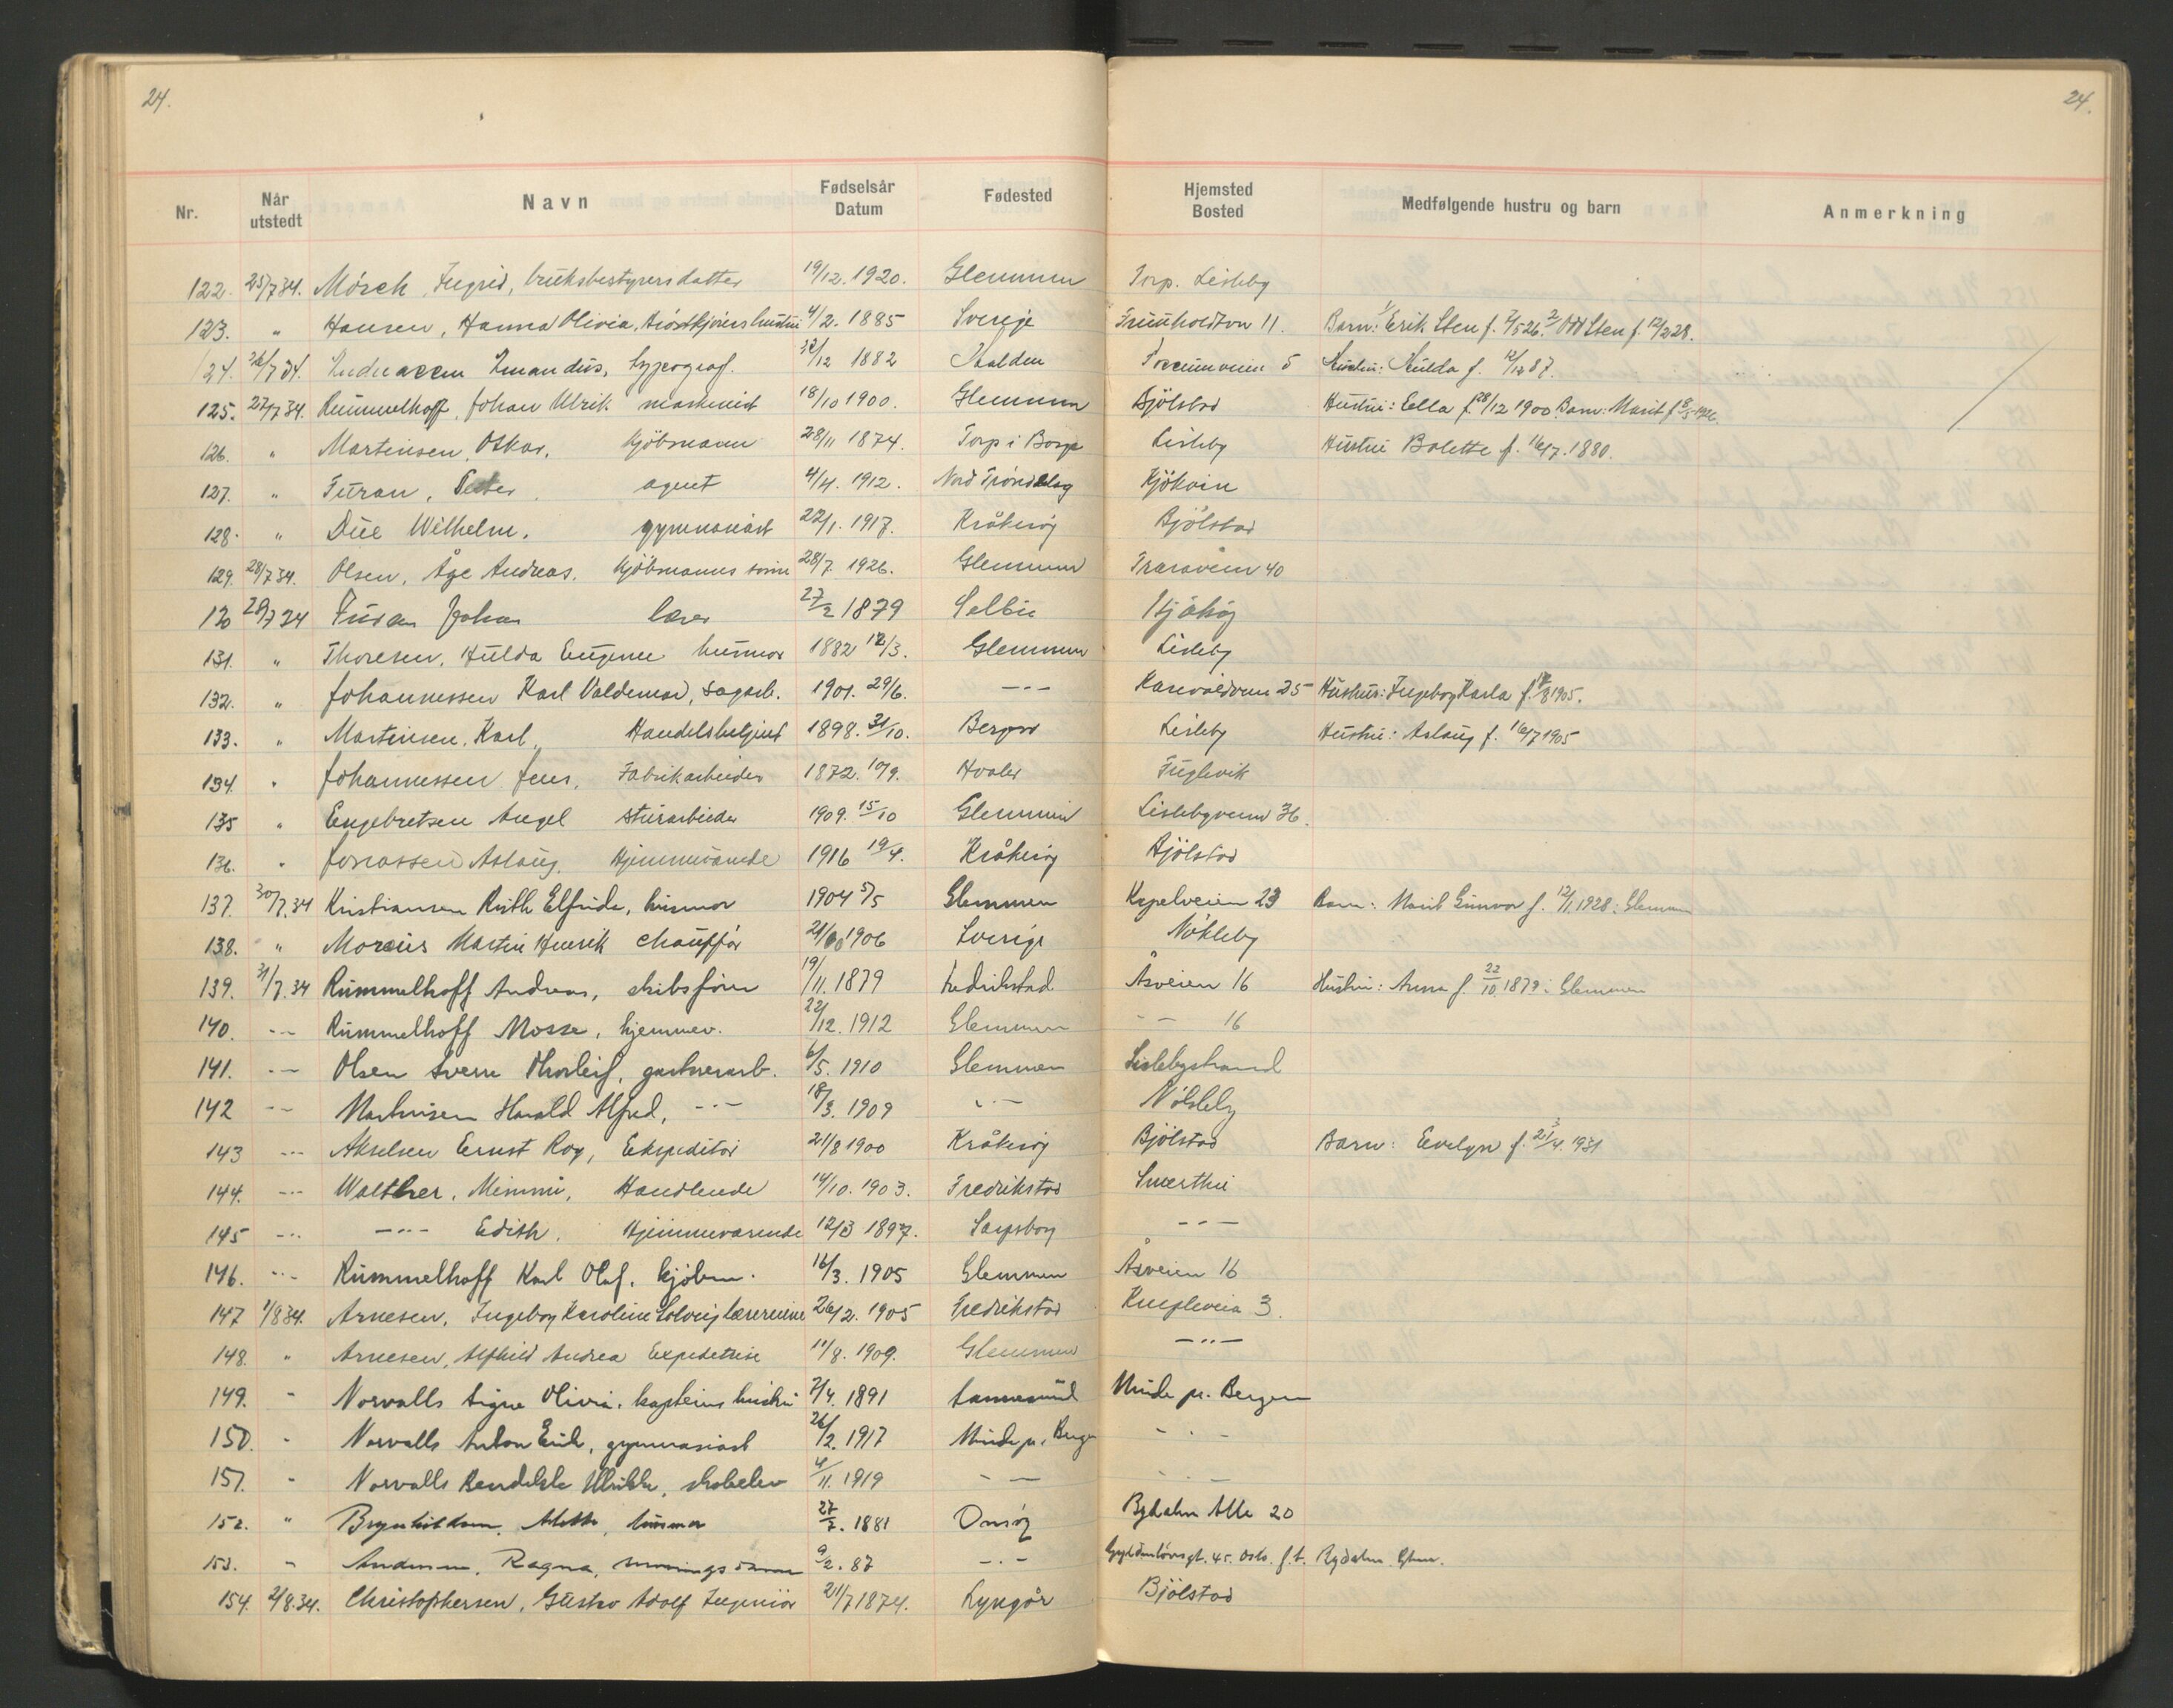 24.
24.
Nr. Når utstedt Navn Fødselsår Datum Fødested Hjemsted Bosted Medfølgende hustru og barn Anmerkning
122. 25/7 34. Mörch, Ingrid, bruksbestyrersdatter 19/12. 1920. Glemmen Torp. Lisleby
123. " Hansen, Hanna Olivia, hustru 4/2. 1885 Sverige 11. Barn: 1/ Erik Sten f. 7/5 26. 2/ Odd Sten f. 12/2 28.
124. 26/7 34. Emandus, typograf. /12 1882 Halden 5 Hustru: Hulda f. 12/12 87.
125. 27/7 34. Rummelhoff, Johan Ulrik maskinist 18/10 1900. Glemmen Bjölstad Hustru: Ella f. 28/12 1900. Barn: Marit f. 8/5 1926.
126. " Martinsen, Oskar, kjöbmann 28/11 1874. Torp i Borge Lisleby Hustru Bolette f. 16/7. 1880.
127. " Furan, Peter, agent 4/4. 1912. Nord Tröndelag Kjököen
128. " Due Wilhelm, gymnasiast 22/1. 1917. Kråkeröy Bjölstad
129. 28/7 34. Olsen, Åge Andreas, kjöbmanns sönn 28/7. 1926. Glemmen Traraveien 40
130 28/7 34 Furan Johan lærer 27/2 1879 Selbu Kjököy
131. " Thoresen, Hulda Eugenie husmor 1882 12/3. Glemmen Lisleby
132. " Johannessen Karl Valdemar, sagarb. 1901. 29/6. -"- 25 Hustru: Ingeborg Karla f. /8 1905.
133. " Martinsen, Karl, Handelsbetjent 1898. 31/10. Lisleby Hustru: Aslaug f. 16/7 1905
134. " Johannessen Jens, Fabrikarbeider 1872. 10/9. Hvaler Fuglevik
135 " Engebretsen Angel sturarbeider 1909. 15/10 Glemmen Lislebyveien 36.
136. " Jonassen Aslaug, Hjemmeværende 1916 19/4. Kråkeröy Bjölstad
137. 30/7.34 Kristiansen Ruth Elfrida, husmor 1904 5/5 Glemmen Kapelveien 23 Barn: Marit Gunvor f. 12/1. 1928 i Glemmen
138. " Morcus Martin Henrik chaufför 21/10 1906 Sverige Nökleby
139. 31/7.34 Rummelhoff Andreas, skibsförer 19/11. 1879 Fredrikstad Åsveien 16 Hustru: Anna f. 22/10. 1879 i Glemmen
140. -"- Rummelhoff Mosse, hjemmev. 22/12. 1912 Glemmen -"- 16
141. -"- Olsen Sverre Thorleif, gartnerarb. 6/5. 1910 Glemmen Lislebystrand
142 -"- Martinsen Harald Alfred, -"- 18/3. 1909 -"- Nökleby
143 -"- Akselsen Ernst Roy, Ekspeditör 21/8 1900 Kråkeröy Bjölstad Barn: Evelyn f. 21/4. 1931
144. -"- Walther, Mimmi, Handlende 14/10. 1903. Fredrikstad Smertu
145 -"- -"- Edith, Hjemmeværende 12/3 1897. Sarpsborg -"-
146. -"- Rummelhoff Karl Olaf, kjöbm. 16/3. 1905 Glemmen Åsveien 16
147 1/8 34. Arnesen, Ingeborg Karoline Solveig lærerinne 26/2. 1905 Fredrikstad 3.
148. " Arnesen, Alfhild Andrea Expeditrise 11/8. 1909. Glemmen -"-
149. " Norvalls Signe Olivia, kapteins hustru 2/4. 1891 Minde pr. Bergen
150. " Norvalls Anton Erik, gymnasiast 26/2. 1917 Minde pr. Bergen -"-
151. " Norvalls Ulrikke, skoleelev 4/11. 1919 -"- -"-
152. " Brynhildsen, Alette, husmor 27/7. 1881 Onsöy Rydalen Alle 20
153. " Andersen, Ragna, 9/2. 87 -"- Gyldenlövsgt. 45. Oslo. f.t. Rydalen Glem.
154. 2/8.34. Christophersen, Gustav Adolf Ingeniör 21/7 1874. Lyngör Bjölstad